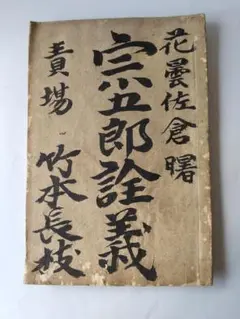 花曇佐倉曙
宗五郎詮義
責場 竹本長枝